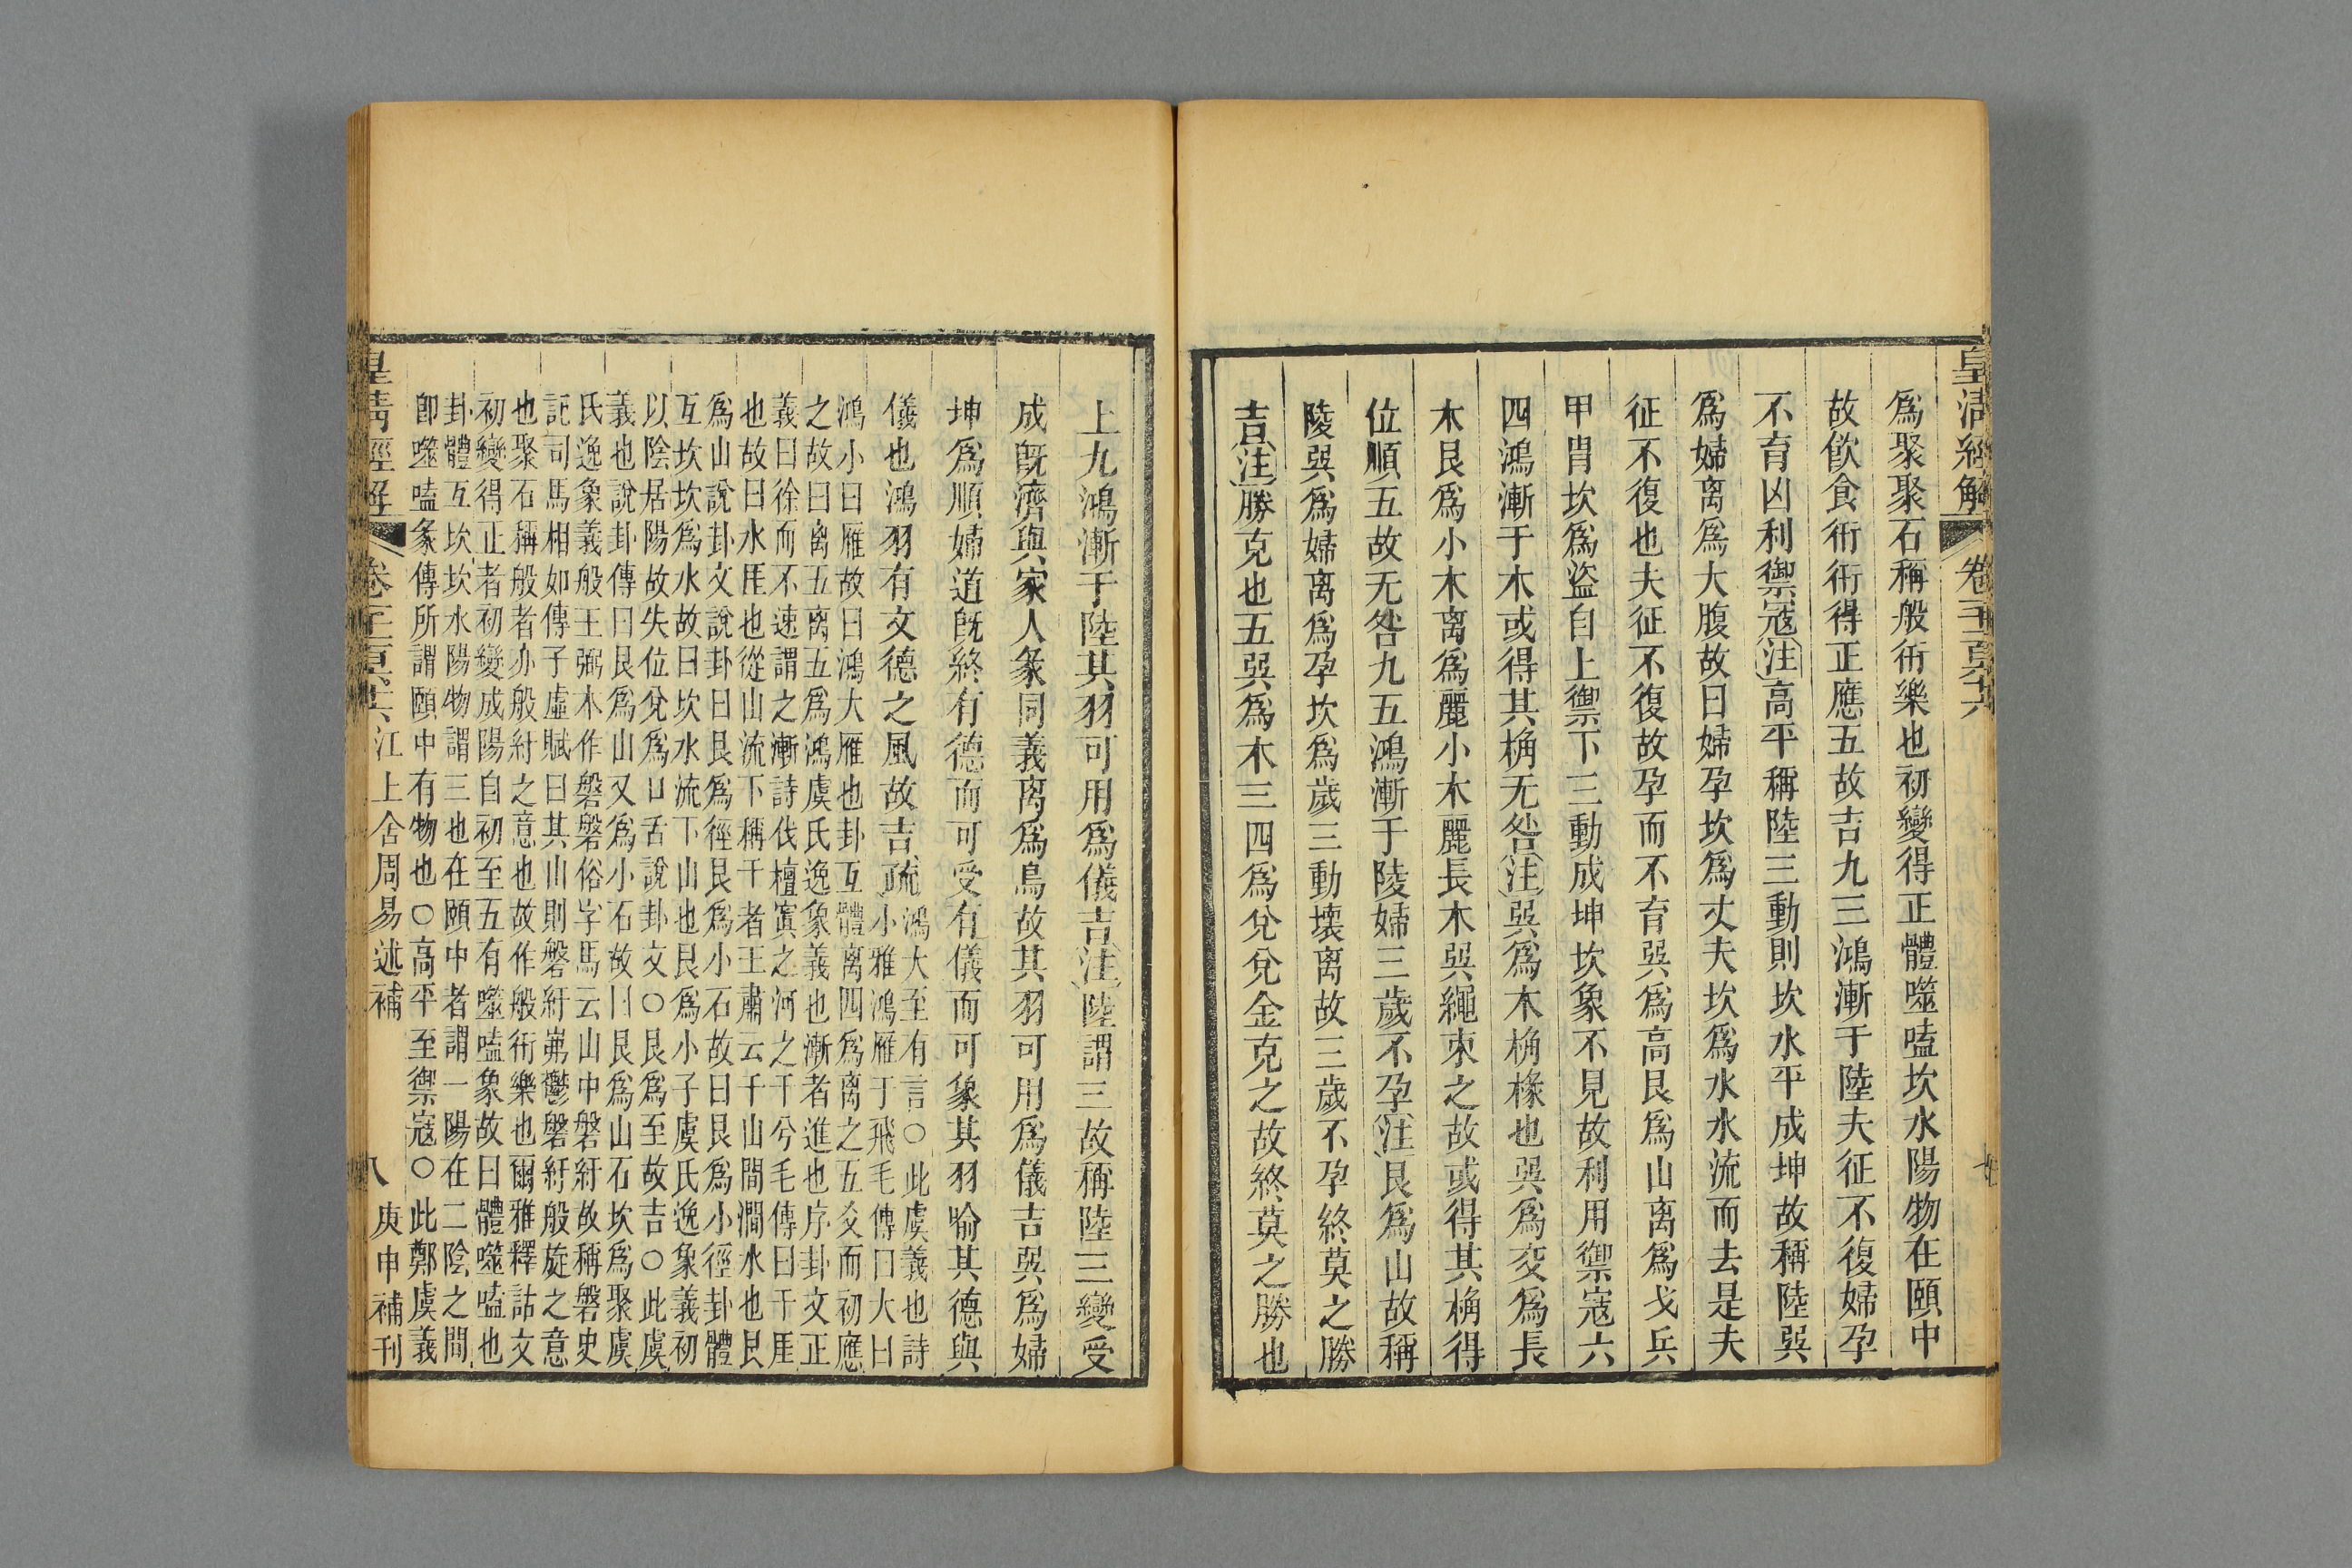 皇清經解
卷
爲聚聚石稱般衎樂也初變得正體噬嗑坎水陽物在頤中
故飮食衎衎得正應五故吉九三鴻漸于陸夫征不復婦孕
不育凶利禦寇注高平稱陸三動則坎水平成坤故稱陸巽
爲婦离爲大腹故曰婦孕坎爲丈夫坎爲水水流而去是夫
征不復也夫征不復故孕而不育巽爲高艮爲山离爲戈兵
甲冑坎爲盜自上禦下三動成坤坎象不見故利用禦寇六
四鴻漸于木或得其桷无咎注巽爲木桷椽也巽爲交爲長
木艮爲小木离爲麗小木麗長木巽繩束之故或得其桷得
位順五故无咎九五鴻漸于陵婦三歲不孕注艮爲山故稱
陵巽爲婦离爲孕坎爲歲三動壞离故三歲不孕終莫之勝
吉注勝克也五巽爲木三四爲兌兌金克之故終莫之勝也
上九鴻漸于陸其羽可用爲儀吉注陸謂三故稱陸三變受
成旣濟與家人彖同義离爲鳥故其羽可用爲儀吉巽爲婦
坤爲順婦道旣終有德而可受有儀而可象其羽喻其德與
儀也鴻羽有文德之風故吉疏
鴻大至有言○此虞義也詩
小雅鴻雁于飛毛傳曰大曰
鴻小曰雁故曰鴻大雁也卦互體离四爲离之五爻而初應
之故曰离五离五爲鴻虞氏逸象義也漸者進也序卦文正
義曰徐而不速謂之漸詩伐檀寘之河之干兮毛傳曰干厓
也故曰水厓也從山流下稱干者王肅云干山間澗水也艮
爲山說卦文說卦曰艮爲徑艮爲小石故曰艮爲小徑卦體
互坎坎爲水故曰坎水流下山也艮爲小子虞氏逸象義初
以陰居陽故失位兌爲口舌說卦文○艮爲至故吉○此虞
義也說卦傳曰艮爲山又爲小石故曰艮爲山石坎爲聚虞
氏逸象義般王弼本作磐磐俗字馬云山中磐紆故稱磐史
記司馬相如傳子虛賦曰其山則磐紆岪鬱磐紆般旋之意
也聚石稱般者亦般紆之意也故作般衎樂也爾雅釋詁文
初變得正者初變成陽自初至五有噬嗑象故曰體噬嗑也
卦體互坎坎水陽物謂三也在頤中者謂一陽在二陰之間
卽噬嗑彖傳所謂頤中有物也○高平至禦寇○此鄭虞義
皇清經解
卷
江上舍周易述補
八
庚申補刊